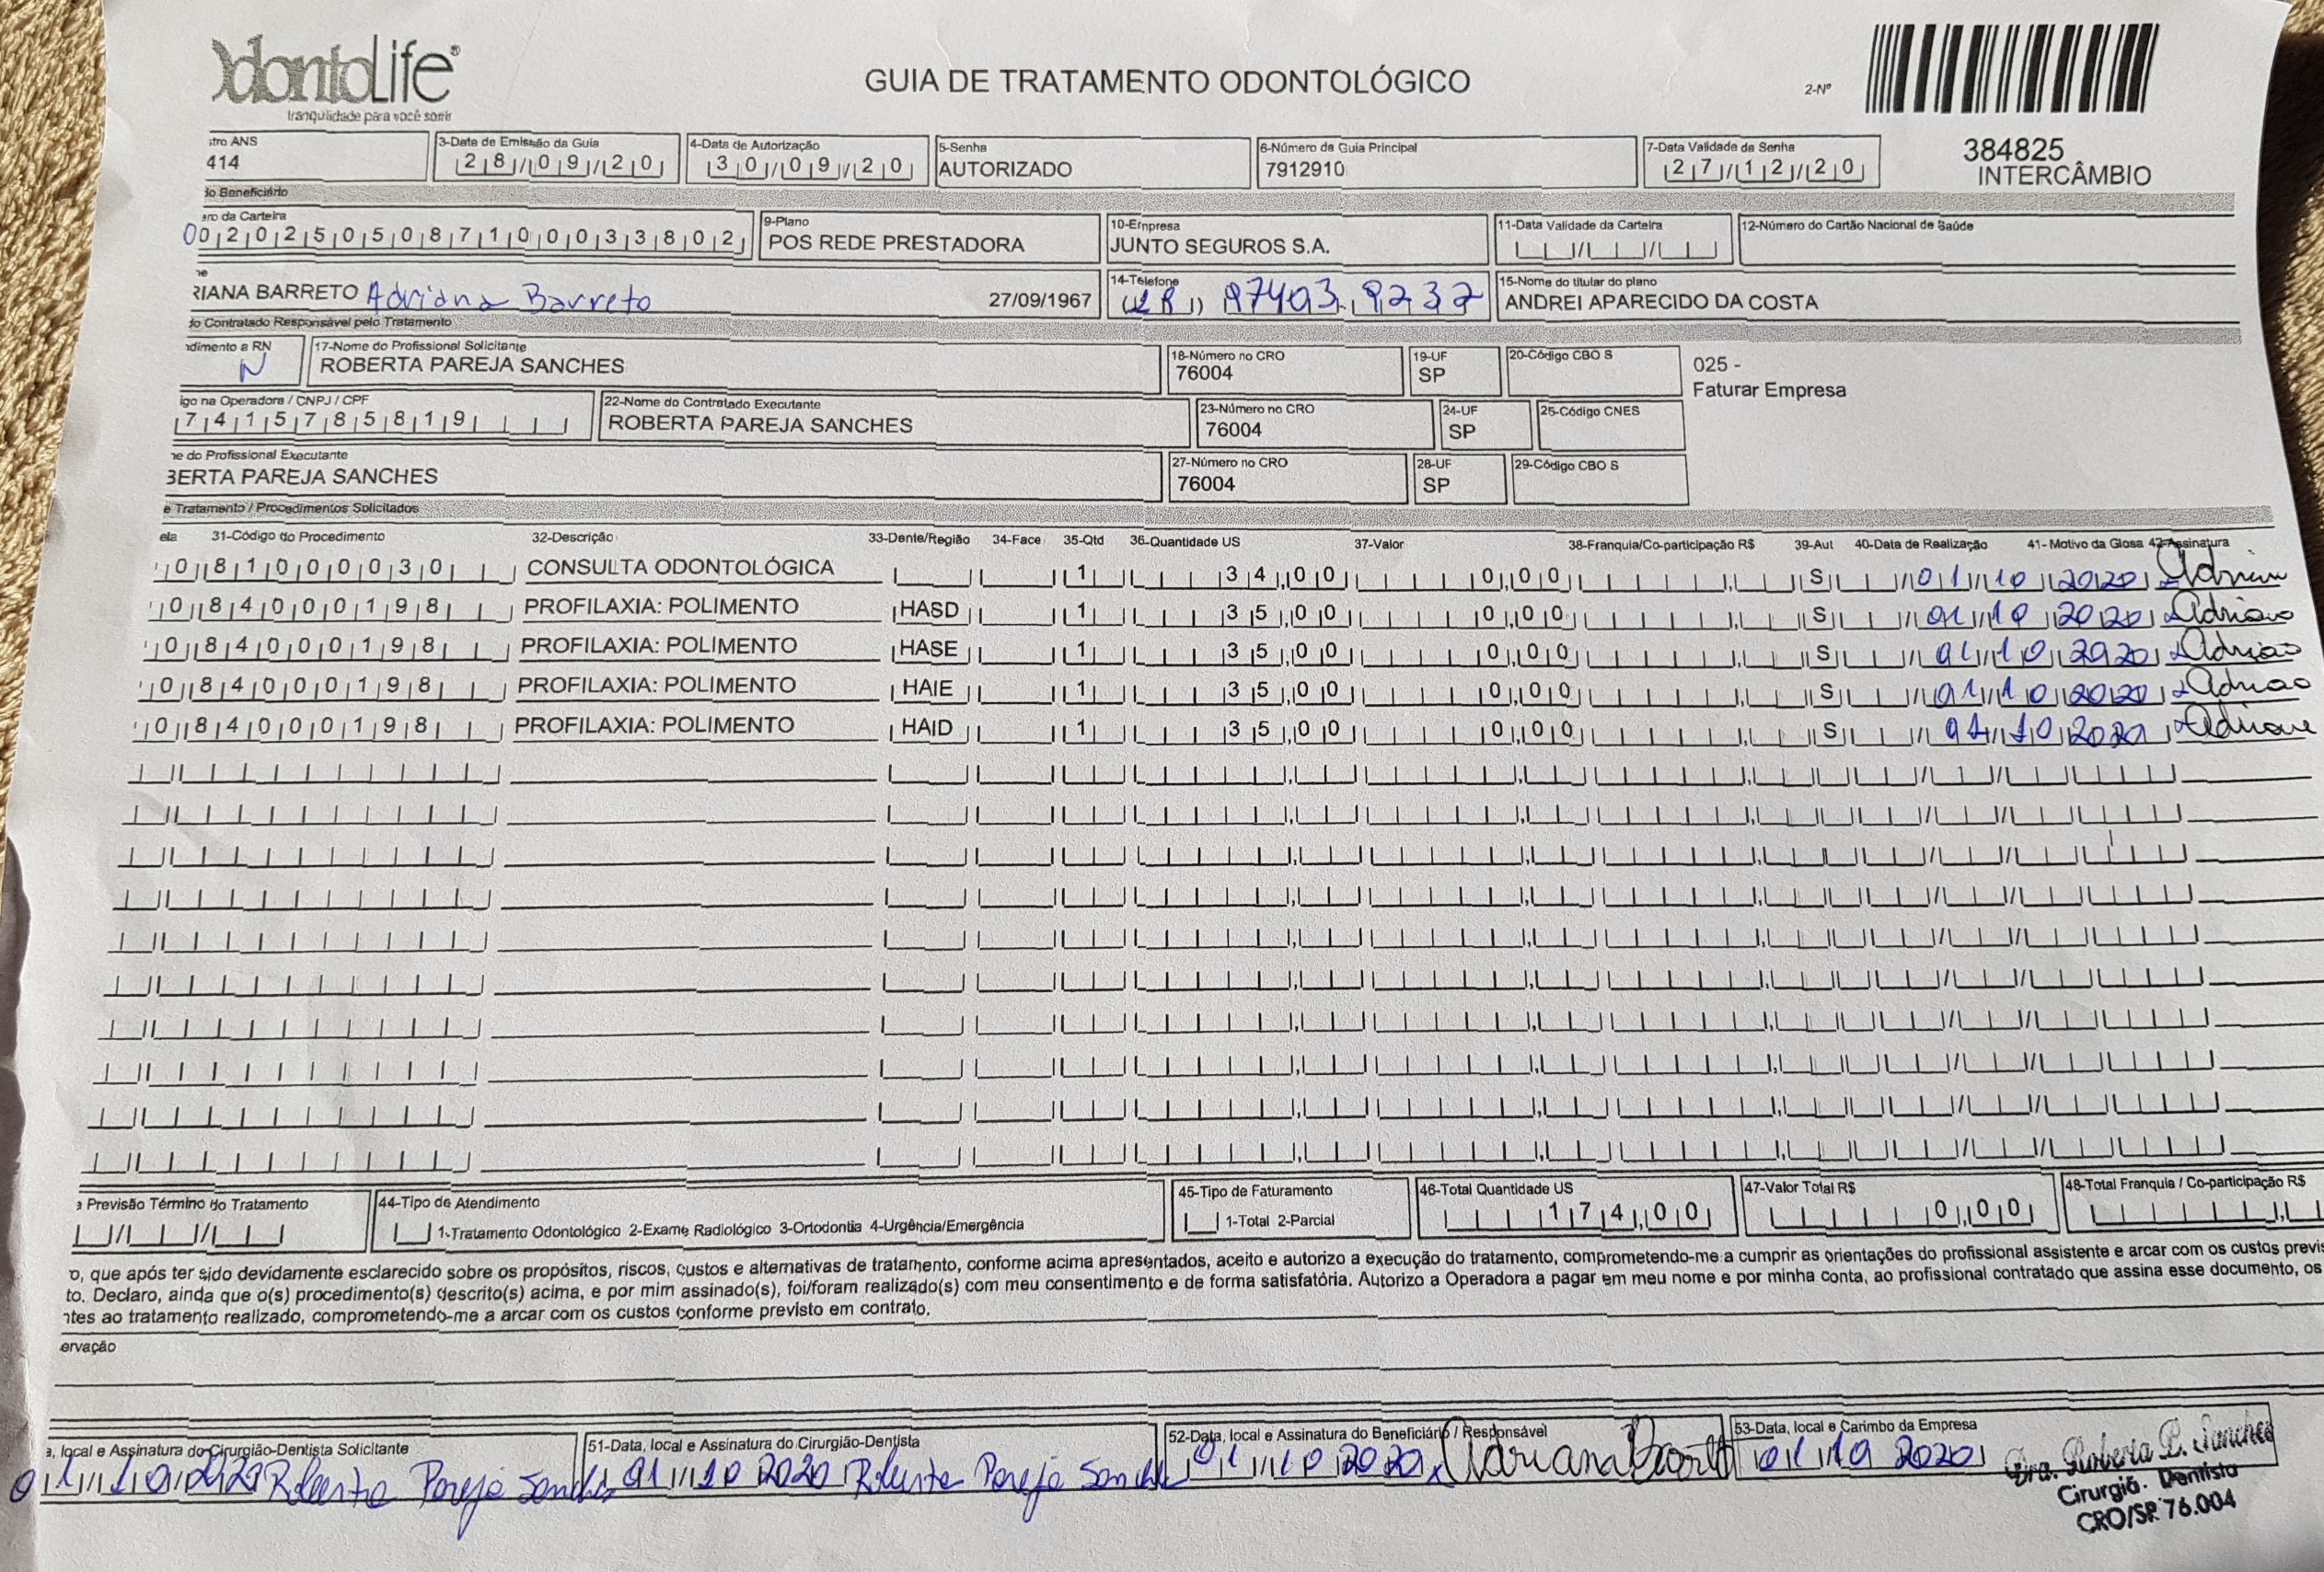 OdontoLife®
tranquilidade para você sorrir
GUIA DE TRATAMENTO ODONTOLÓGICO
2-Nº
384825
INTERCÂMBIO
stro ANS
414
3-Data de Emissão da Guia
28/09/20
4-Data de Autorização
30/09/20
5-Senha
AUTORIZADO
6-Número da Guia Principal
7912910
7-Data Validade da Senha
27/12/20
do Beneficiário
ero da Carteira
00202505087100033802
9-Plano
POS REDE PRESTADORA
10-Empresa
JUNTO SEGUROS S.A.
11-Data Validade da Carteira
12-Número do Cartão Nacional de Saúde
me
RIANA BARRETO Adriana Barreto 27/09/1967
14-Telefone
97403.9237
15-Nome do titular do plano
ANDREI APARECIDO DA COSTA
do Contratado Responsável pelo Tratamento
ndimento a RN
N
17-Nome do Profissional Solicitante
ROBERTA PAREJA SANCHES
18-Número no CRO
76004
19-UF
SP
20-Código CBO S
025 -
Faturar Empresa
igo na Operadora / CNPJ / CPF
7415785819
22-Nome do Contratado Executante
ROBERTA PAREJA SANCHES
23-Número no CRO
76004
24-UF
SP
25-Código CNES
ne do Profissional Executante
BERTA PAREJA SANCHES
27-Número no CRO
76004
28-UF
SP
29-Código CBO S
e Tratamento / Procedimentos Solicitados
ela 31-Código do Procedimento 32-Descrição 33-Dente/Região 34-Face 35-Qtd 36-Quantidade US 37-Valor 38-Franquia/Co-participação R$ 39-Aut 40-Data de Realização 41- Motivo da Glosa 42-Assinatura
081000030 CONSULTA ODONTOLÓGICA 1 34,00 0,00 S 01/10/2020 Adriana
084000198 PROFILAXIA: POLIMENTO HASD 1 35,00 0,00 S 01/10/2020 Adriana
084000198 PROFILAXIA: POLIMENTO HASE 1 35,00 0,00 S 01/10/2020 Adriana
084000198 PROFILAXIA: POLIMENTO HAIE 1 35,00 0,00 S 01/10/2020 Adriana
084000198 PROFILAXIA: POLIMENTO HAID 1 35,00 0,00 S 01/10/2020 Adriana
a Previsão Término do Tratamento
44-Tipo de Atendimento
1-Tratamento Odontológico 2-Exame Radiológico 3-Ortodontia 4-Urgência/Emergência
45-Tipo de Faturamento
1-Total 2-Parcial
46-Total Quantidade US
174,00
47-Valor Total R$
0,00
48-Total Franquia / Co-participação R$
o, que após ter sido devidamente esclarecido sobre os propósitos, riscos, custos e alternativas de tratamento, conforme acima apresentados, aceito e autorizo a execução do tratamento, comprometendo-me a cumprir as orientações do profissional assistente e arcar com os custos previs
to. Declaro, ainda que o(s) procedimento(s) descrito(s) acima, e por mim assinado(s), foi/foram realizado(s) com meu consentimento e de forma satisfatória. Autorizo a Operadora a pagar em meu nome e por minha conta, ao profissional contratado que assina esse documento, os
ntes ao tratamento realizado, comprometendo-me a arcar com os custos conforme previsto em contrato.
ervação
a, local e Assinatura do Cirurgião-Dentista Solicitante
01/10/2020 Roberta Pareja Sanches
51-Data, local e Assinatura do Cirurgião-Dentista
01/10 2020 Roberta Pareja Sanches
52-Data, local e Assinatura do Beneficiário / Responsável
01/10/2020 x Adriana Barreto
53-Data, local e Carimbo da Empresa
01/10 2020
Dra. Roberta P. Sanches
Cirurgiã. Dentista
CRO/SP. 76.004